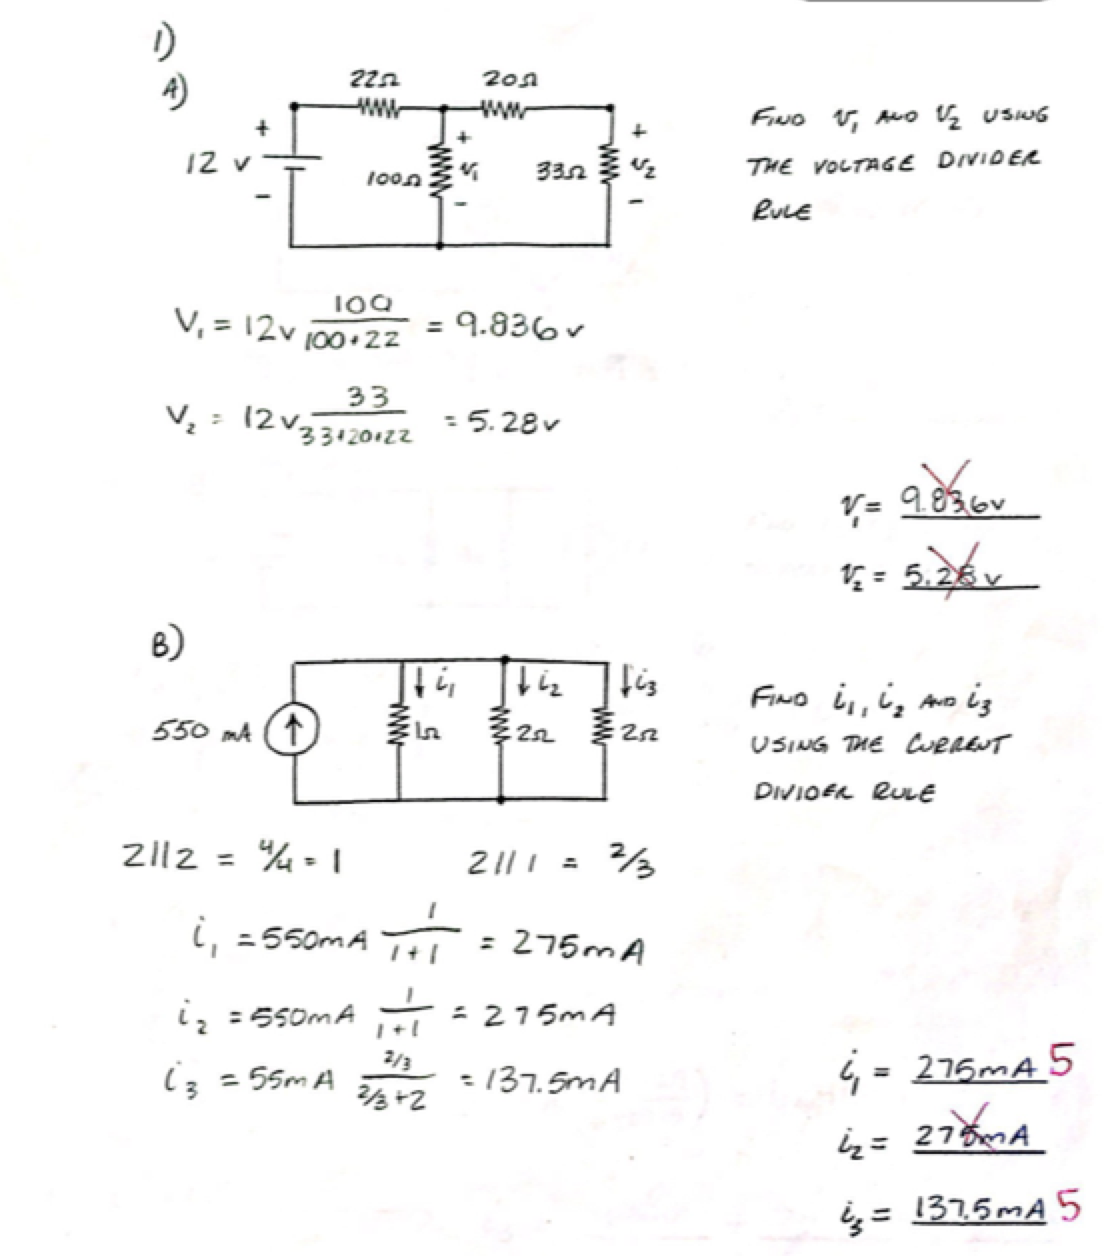 1)
A)
22Ω 20Ω
12 v + - 100Ω + v₁ - 33Ω + v₂ -
FIND v₁ AND v₂ USING
THE VOLTAGE DIVIDER
RULE
V₁ = 12v 100/(100+22) = 9.836v
V₂ = 12v 33/(33+20+22) = 5.28v
v₁ = 9.836v
v₂ = 5.28v
B)
550 mA ↑ ↓ i₁ 1Ω ↓ i₂ 2Ω ↓ i₃ 2Ω
FIND i₁, i₂ AND i₃
USING THE CURRENT
DIVIDER RULE
2||2 = 4/4 = 1 2||1 = 2/3
i₁ = 550mA 1/(1+1) = 275mA
i₂ = 550mA 1/(1+1) = 275mA
i₃ = 55mA (2/3)/(2/3+2) = 137.5mA
i₁ = 275mA 5
i₂ = 275mA
i₃ = 137.5mA 5